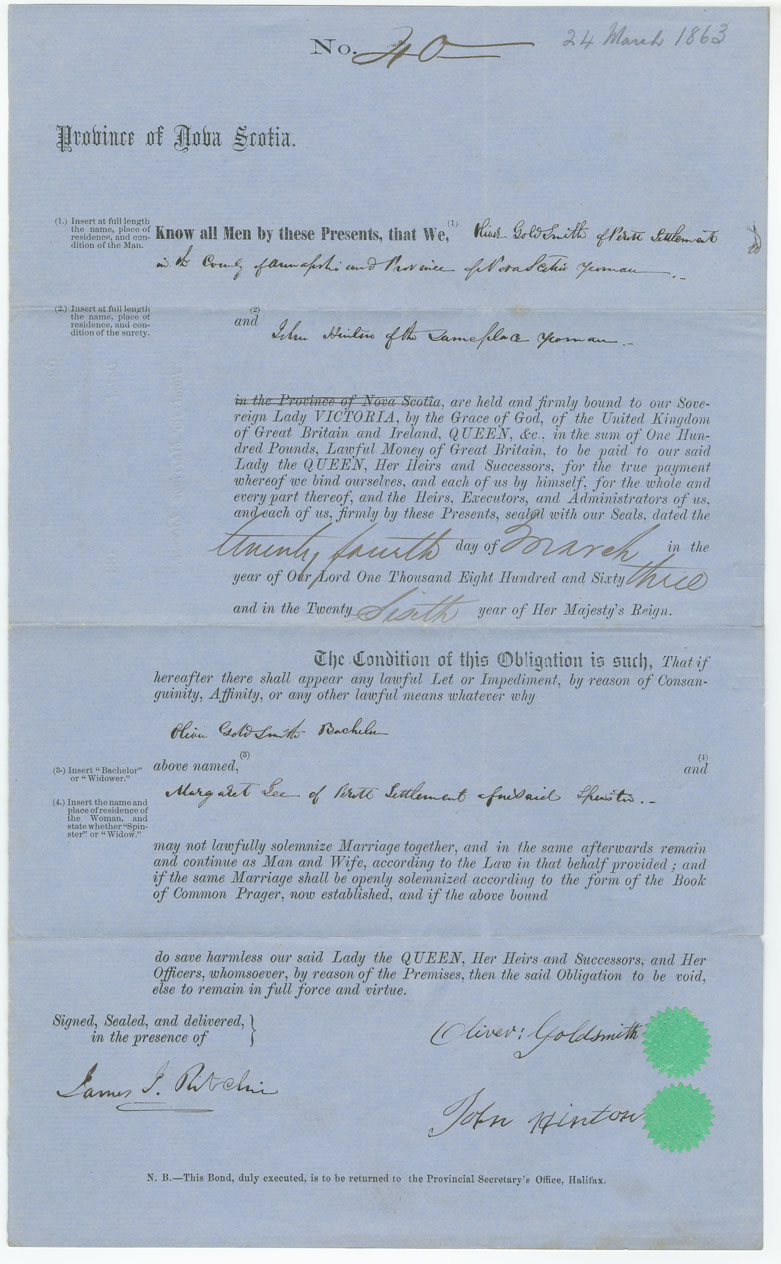 No. 40
24 March 1863
Province of Nova Scotia.
(1.) Insert at full length
the name, place of
residence, and con-
dition of the Man.
Know all Men by these Presents, that We, (1) Oliver GoldSmith of Perott Settlement
in the County of Annapolis and Province of Nova Scotia Yeoman
(2.) Insert at full length
the name, place of
residence, and con-
dition of the surety.
and (2) John Hinton of the same place yeoman
in the Province of Nova Scotia, are held and firmly bound to our Sove-
reign Lady VICTORIA, by the Grace of God, of the United Kingdom
of Great Britain and Ireland, QUEEN, &c., in the sum of One Hun-
dred Pounds, Lawful Money of Great Britain, to be paid to our said
Lady the QUEEN, Her Heirs and Successors, for the true payment
whereof we bind ourselves, and each of us by himself, for the whole and
every part thereof, and the Heirs, Executors, and Administrators of us,
and each of us, firmly by these Presents, sealed with our Seals, dated the
twenty fourth day of March in the
year of Our Lord One Thousand Eight Hundred and Sixty three
and in the Twenty Sixth year of Her Majesty's Reign.
The Condition of this Obligation is such, That if
hereafter there shall appear any lawful Let or Impediment, by reason of Consan-
guinity, Affinity, or any other lawful means whatever why
Oliver GoldSmith Bachelor
(3.) Insert "Bachelor"
or "Widower."
above named, (3) and (4)
(4.) Insert the name and
place of residence of
the Woman, and
state whether "Spin-
ster" or "Widow."
Margaret Lee of Perott Settlement aforesaid Spinster
may not lawfully solemnize Marriage together, and in the same afterwards remain
and continue as Man and Wife, according to the Law in that behalf provided; and
if the same Marriage shall be openly solemnized according to the form of the Book
of Common Prager, now established, and if the above bound
do save harmless our said Lady the QUEEN, Her Heirs and Successors, and Her
Officers, whomsoever, by reason of the Premises, then the said Obligation to be void,
else to remain in full force and virtue.
Signed, Sealed, and delivered,
in the presence of
Oliver: Goldsmith
James J. Ritchie
John Hinton
N. B.—This Bond, duly executed, is to be returned to the Provincial Secretary's Office, Halifax.